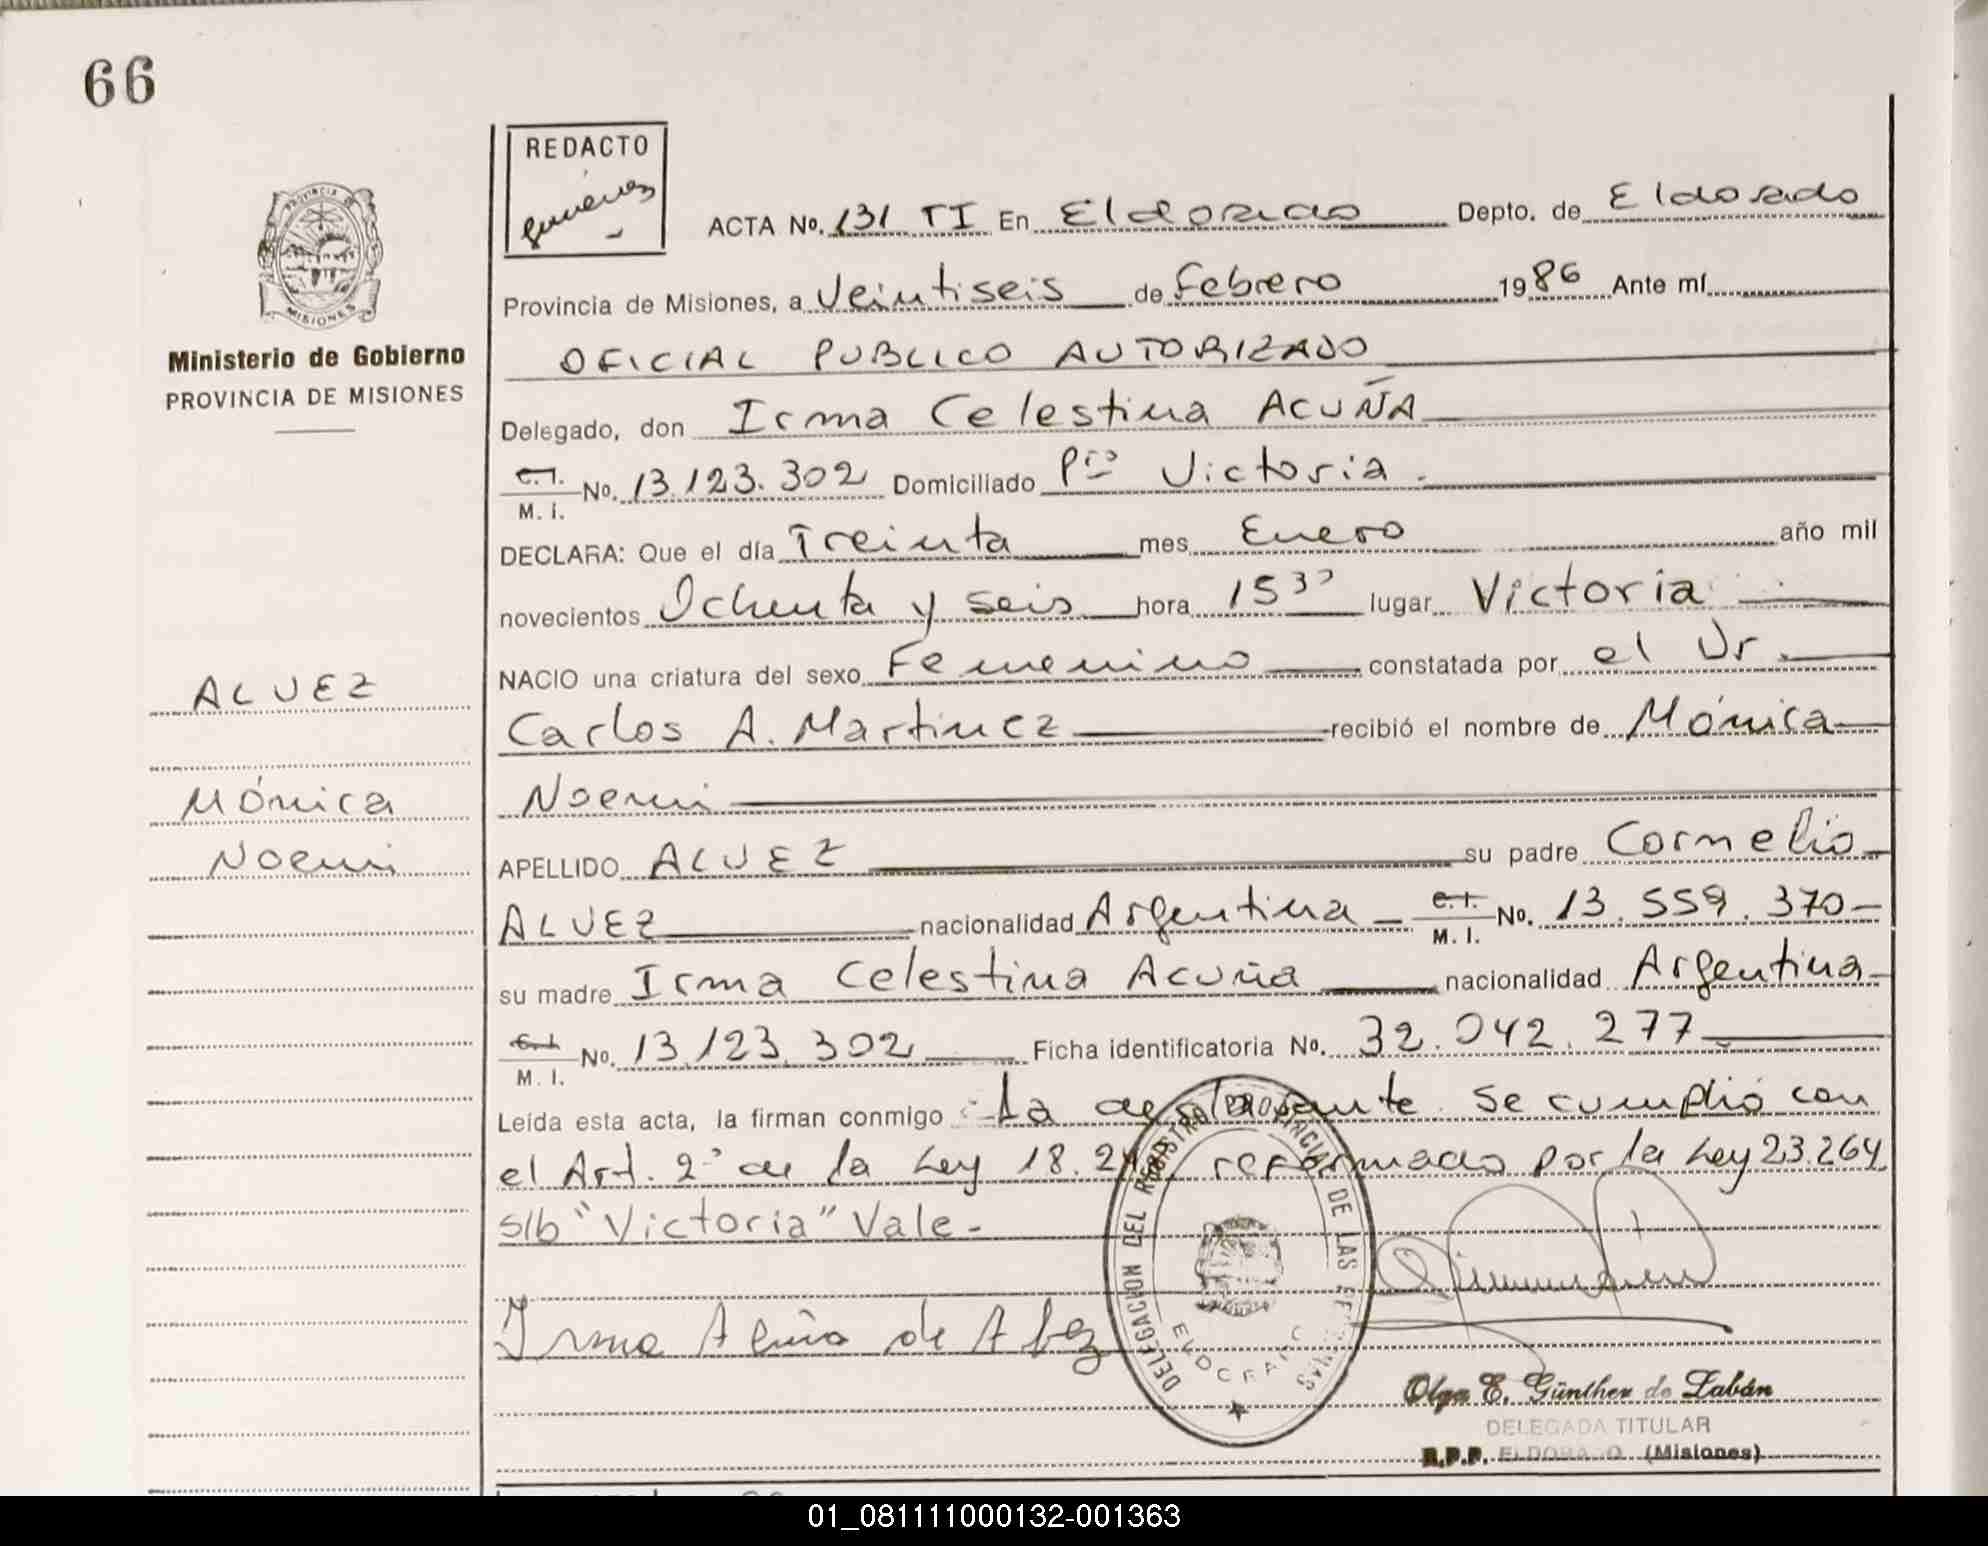 66
REDACTO
ACTA No. 131 TI En Eldorado Depto. de Eldorado
PROVINCIA
MISIONES
Provincia de Misiones, a Veintiseis de Febrero 1986 Ante mí
Ministerio de Gobierno
PROVINCIA DE MISIONES
OFICIAL PUBLICO AUTORIZADO
Delegado, don Irma Celestina ACUÑA
C.I. M.I. No. 13.123.302 Domiciliado Pto Victoria.
DECLARA: Que el día Treinta mes Enero año mil
novecientos Ochenta y seis hora 15³⁰ lugar Victoria
NACIO una criatura del sexo Femenino constatada por el Dr.
ALVEZ
Carlos A. Martinez recibió el nombre de Mónica
Mónica
Noemi
Noemi
APELLIDO ALVEZ su padre Cornelio
ALVEZ nacionalidad Argentina C.I. M.I. No. 13.559.370
su madre Irma Celestina Acuña nacionalidad Argentina
C.I. M.I. No. 13.123.302 Ficha identificatoria No. 32.042.277
Leída esta acta, la firman conmigo La declarante. Se cumplió con
el Art. 2º de la Ley 18.24 reformado por la Ley 23.264
s/b "Victoria" Vale-
Irma Acuña de Alvez
DELEGACION DEL REGISTRO PROVINCIAL DE LAS PERSONAS
ELDORADO
Olga E. Günther de Zabán
DELEGADA TITULAR
R.P.P. ELDORADO (Misiones)
01_081111000132-001363